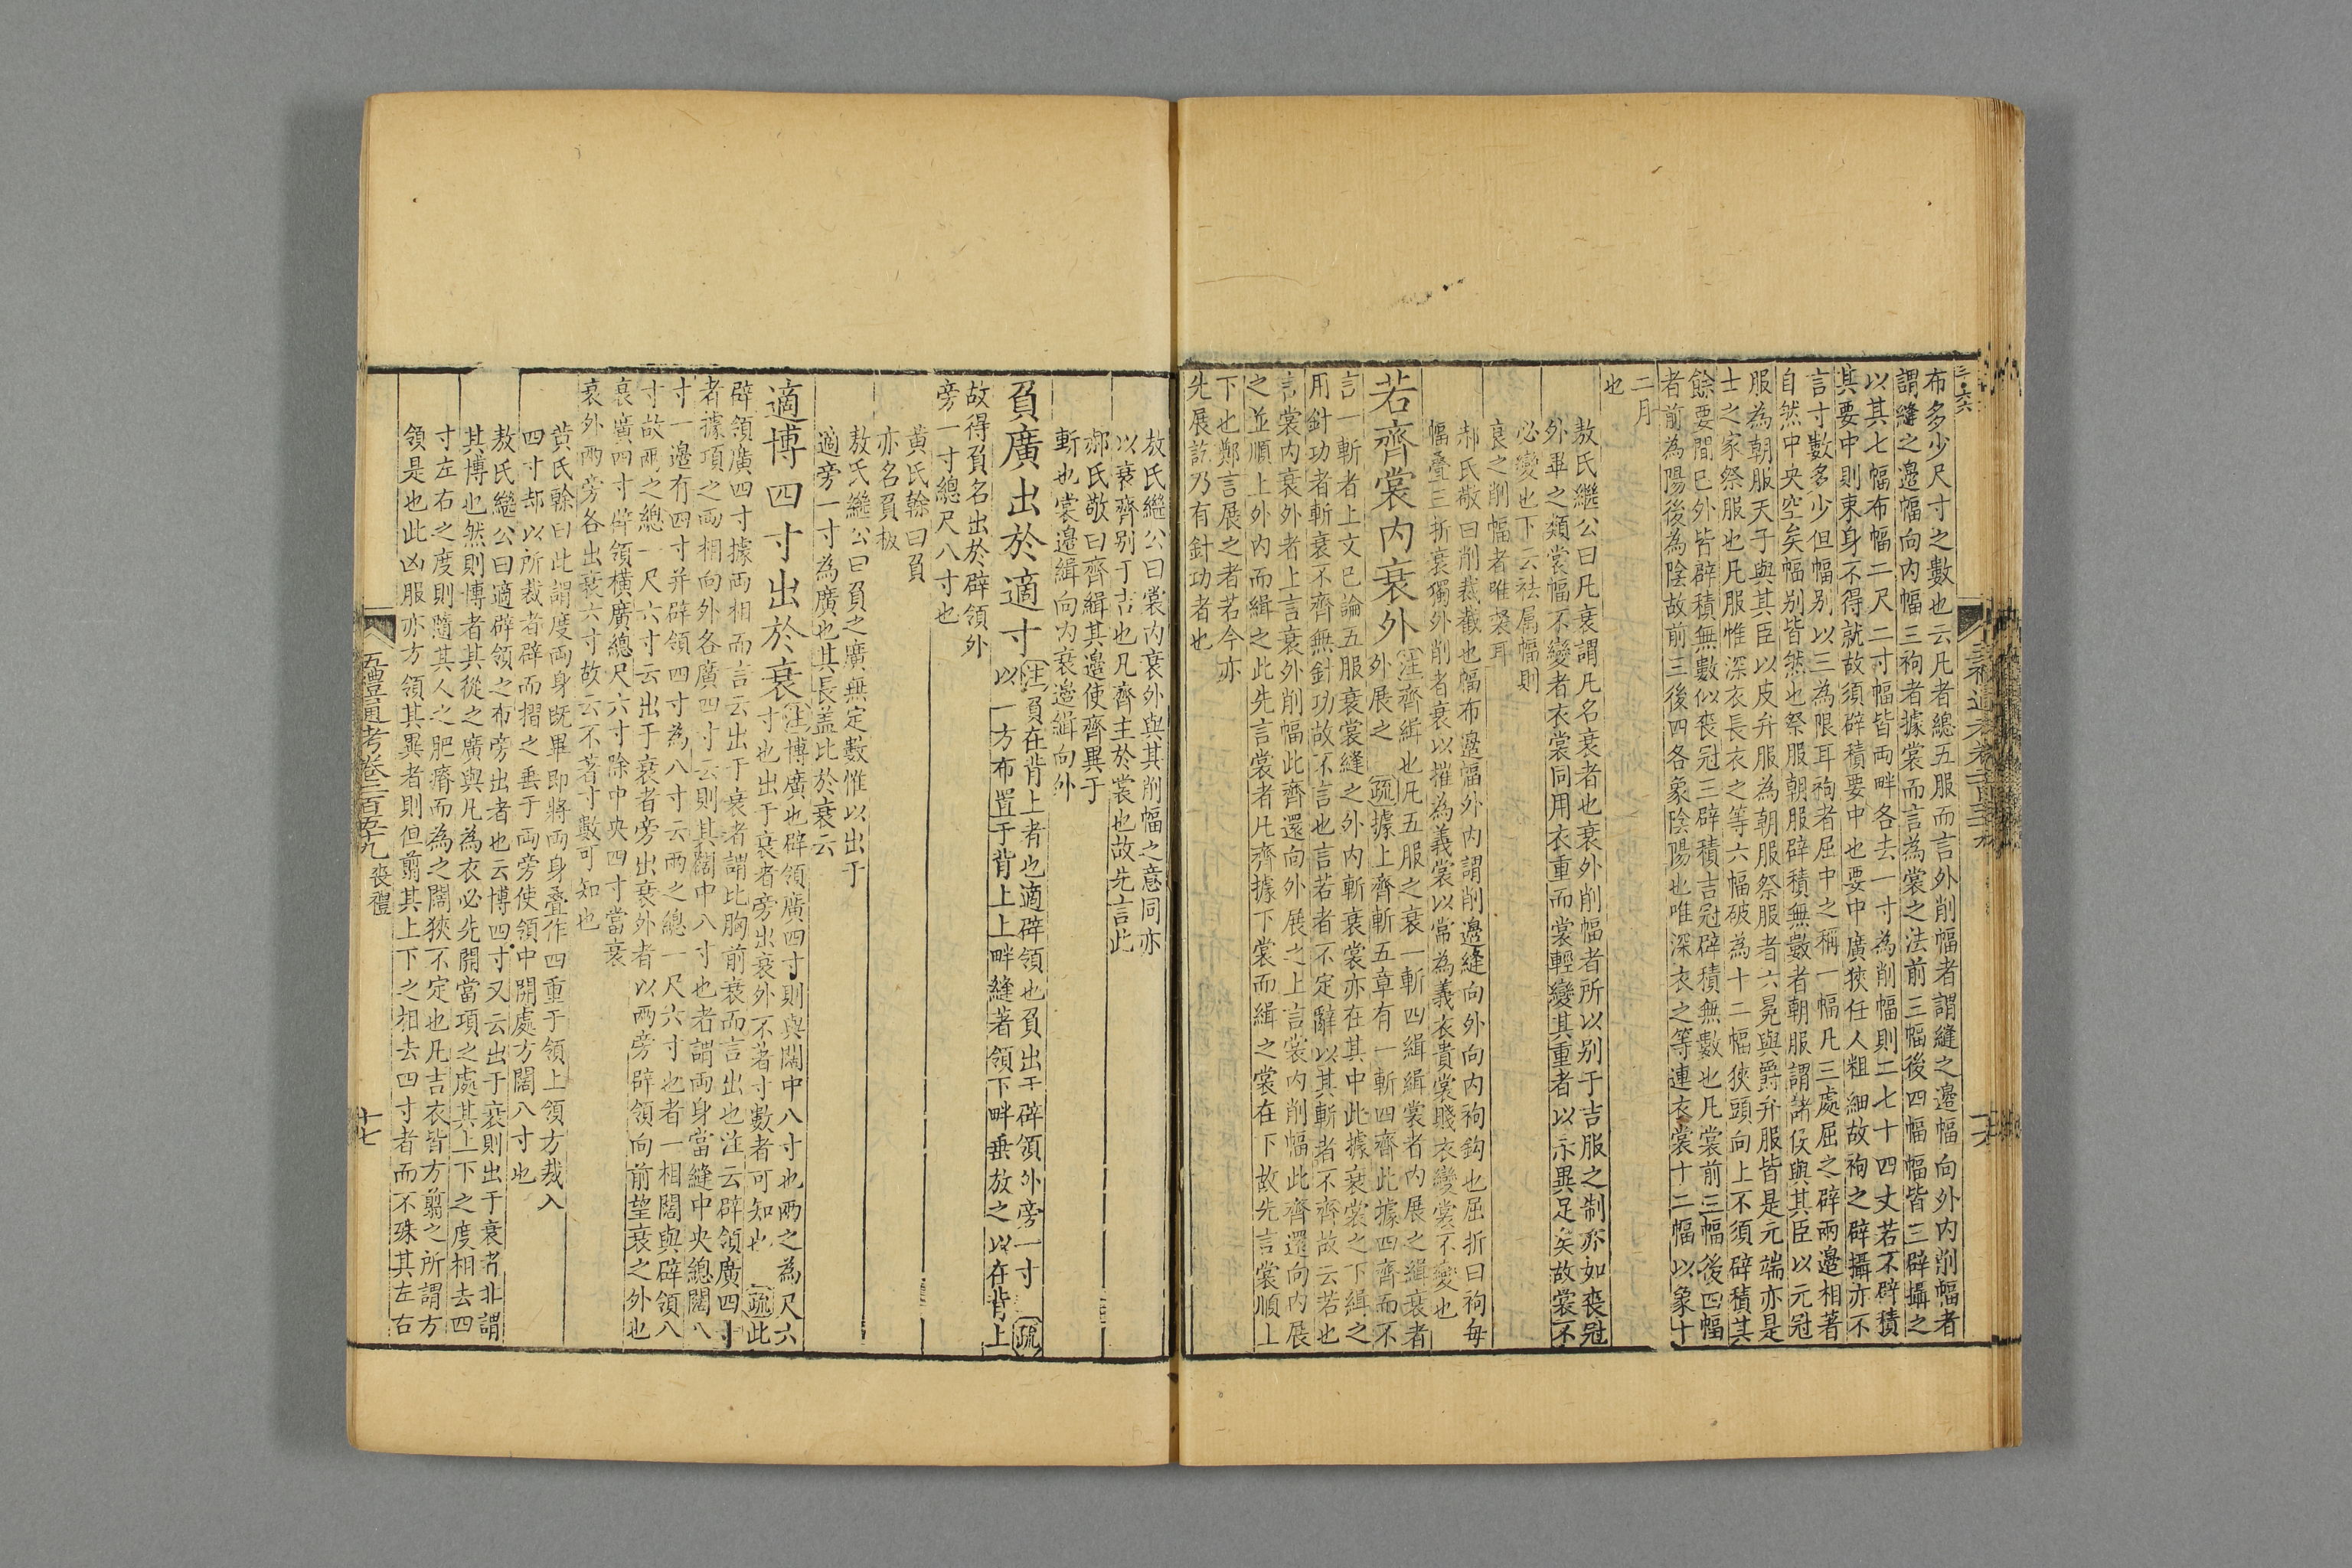 布多少尺寸之數也云凡者總五服而言外削幅者謂縫之邊幅向外内削幅者
謂縫之邊幅向内幅三袧者據裳而言為裳之法前三幅後四幅幅皆三辟攝之
以其七幅布幅二尺二寸幅皆兩畔各去一寸為削幅則二七十四丈若不辟積
其要中則束身不得就故須辟積要中也要中廣狹任人粗細故袧之辟攝亦不
言寸數多少但幅别以三為限耳袧者屈中之稱一幅凡三處屈之辟兩邊相著
自然中央空矣幅别皆然也祭服朝服辟積無數者朝服謂諸侯與其臣以元冠
服為朝服天子與其臣以皮弁服為朝服祭服者六冕與爵弁服皆是元端亦是
士之家祭服也凡服惟深衣長衣之等六幅破為十二幅狹頭向上不須辟積其
餘要間已外皆辟積無數似喪冠三辟積吉冠辟積無數也凡裳前三幅後四幅
者前為陽後為陰故前三後四各象陰陽也唯深衣之等連衣裳十二幅以象十
二月
也
敖氏繼公曰凡衰謂凡名衰者也衰外削幅者所以别于吉服之制亦如喪冠
外畢之類裳幅不變者衣裳同用衣重而裳輕變其重者以示異足矣故裳不
必變也下云袪属幅則
衰之削幅者唯袂耳
郝氏敬曰削裁截也幅布邊幅外内謂削邊縫向外向内袧鈎也屈折曰袧每
幅疊三折衰獨外削者衰以摧為義裳以常為義衣貴裳賤衣變裳不變也
若齊裳内衰外
注齊緝也凡五服之衰一斬四緝緝裳者内展之緝衰者
外展之
疏據上齊斬五章有一斬四齊此據四齊而不
言一斬者上文已論五服衰裳縫之外内斬衰裳亦在其中此據衰裳之下緝之
用針功者斬衰不齊無針功故不言也言若者不定辭以其斬者不齊故云若也
言裳内衰外者上言衰外削幅此齊還向外展之上言裳内削幅此齊還向内展
之並順上外内而緝之此先言裳者凡齊據下裳而緝之裳在下故先言裳順上
下也鄭言展之者若今亦
先展訖乃有針功者也
敖氏繼公曰裳内衰外與其削幅之意同亦
以衰齊别于吉也凡齊主於裳也故先言此
郝氏敬曰齊緝其邊使齊異于
斬也裳邊緝向内衰邊緝向外
負廣出於適寸
注負在背上者也適辟領也負出于辟領外旁一寸
疏
以一方布置于背上上畔縫著領下畔垂放之以在背上
故得負名出於辟領外
旁一寸總尺八寸也
黄氏榦曰負
亦名負板
敖氏繼公曰負之廣無定數惟以出于
適旁一寸為廣也其長盖比於衰云
適博四寸出於衰
注博廣也辟領廣四寸則與闊中八寸也兩之為尺六
寸也出于衰者旁出衰外不著寸數者可知也
疏此
辟領廣四寸據兩相而言云出于衰者謂比胸前衰而言出也注云辟領廣四寸
者據項之兩相向外各廣四寸云則其闊中八寸也者謂兩身當縫中央總闊八
寸一邊有四寸并辟領四寸為八寸云兩之總一尺六寸也者一相闊與辟領八
寸故兩之總一尺六寸云出于衰者旁出衰外者以兩旁辟領向前望衰之外也
衰廣四寸辟領橫廣總尺六寸除中央四寸當衰
衰外兩旁各出衰六寸故云不著寸數可知也
黄氏榦曰此謂度兩身既畢即將兩身疊作四重于領上領方裁入
四寸却以所裁者辟而摺之垂于兩旁使領中開處方闊八寸也
敖氏繼公曰適辟領之布旁出者也云博四寸又云出于衰則出于衰者非謂
其博也然則博者其從之廣與凡為衣必先開當項之處其上下之度相去四
寸左右之度則隨其人之肥瘠而為之闊狹不定也凡吉衣皆方翦之所謂方
領是也此凶服亦方領其異者則但翦其上下之相去四寸者而不殊其左右
五禮通考卷二百五十九 喪禮
十七